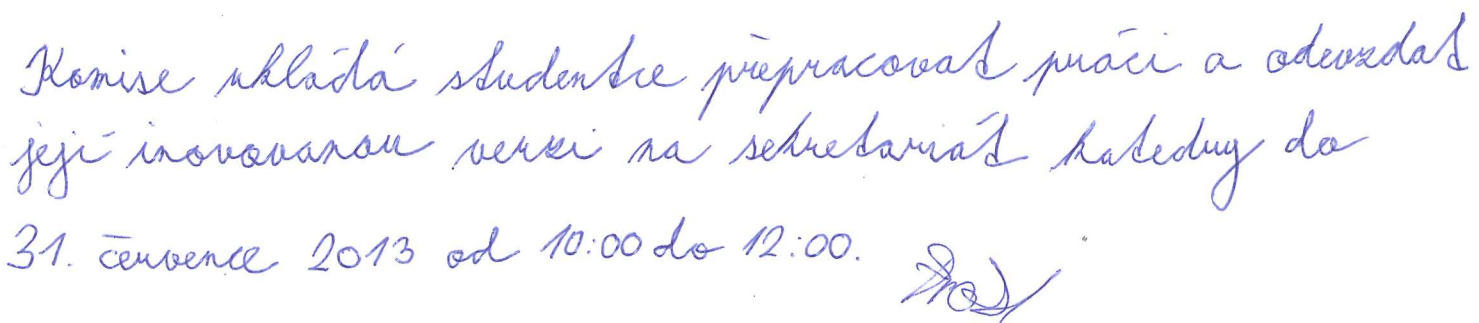 Komise ukládá studentce přepracovat práci a odevzdat
její inovovanou verzi na sekretariát katedry do
31. července 2013 od 10:00 do 12:00.